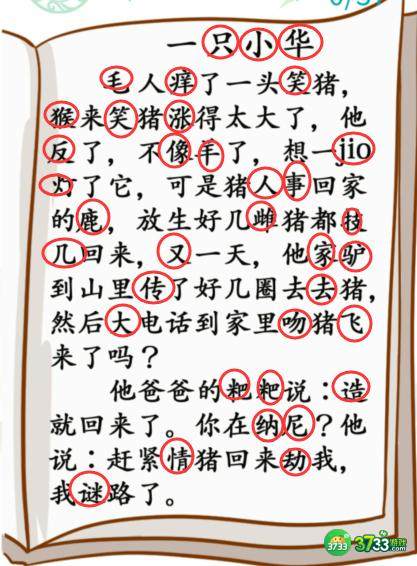 一只小华
毛人痒了一头笑猪，
猴来笑猪涨得太大了，他
反了，不像羊了，想一jio
灯了它，可是猪人事回家
的鹿，放生好几雌猪都技
几回来，又一天，他家驴
到山里传了好几圈去去猪，
然后大电话到家里吻猪飞
来了吗？
他爸爸的粑粑说：造
就回来了。你在纳尼？他
说：赶紧情猪回来劫我，
我谜路了。
3733
3733游戏
.com